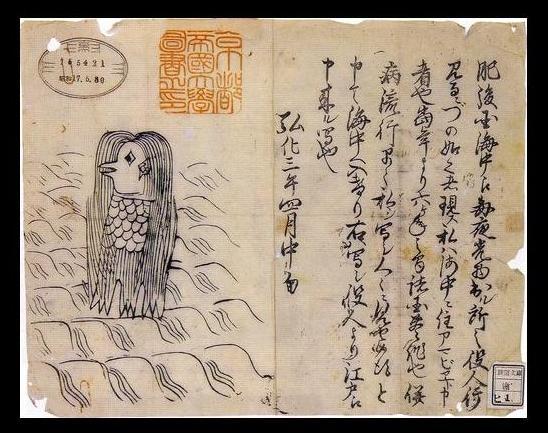 肥後国海中え毎夜光物出ル所之役人行
見るニづの如之者現ス私ハ海中ニ住アマビヱト申
者也当年より六ケ年之間諸国豊作也併
病流行早々私写シ人々ニ見せ候得と
申て海中へ入けり右写シ役人より江戸え
申来ル写也
弘化三年四月中旬
京都
帝國大學
圖書之印
昭和17.5.30
新聞文庫